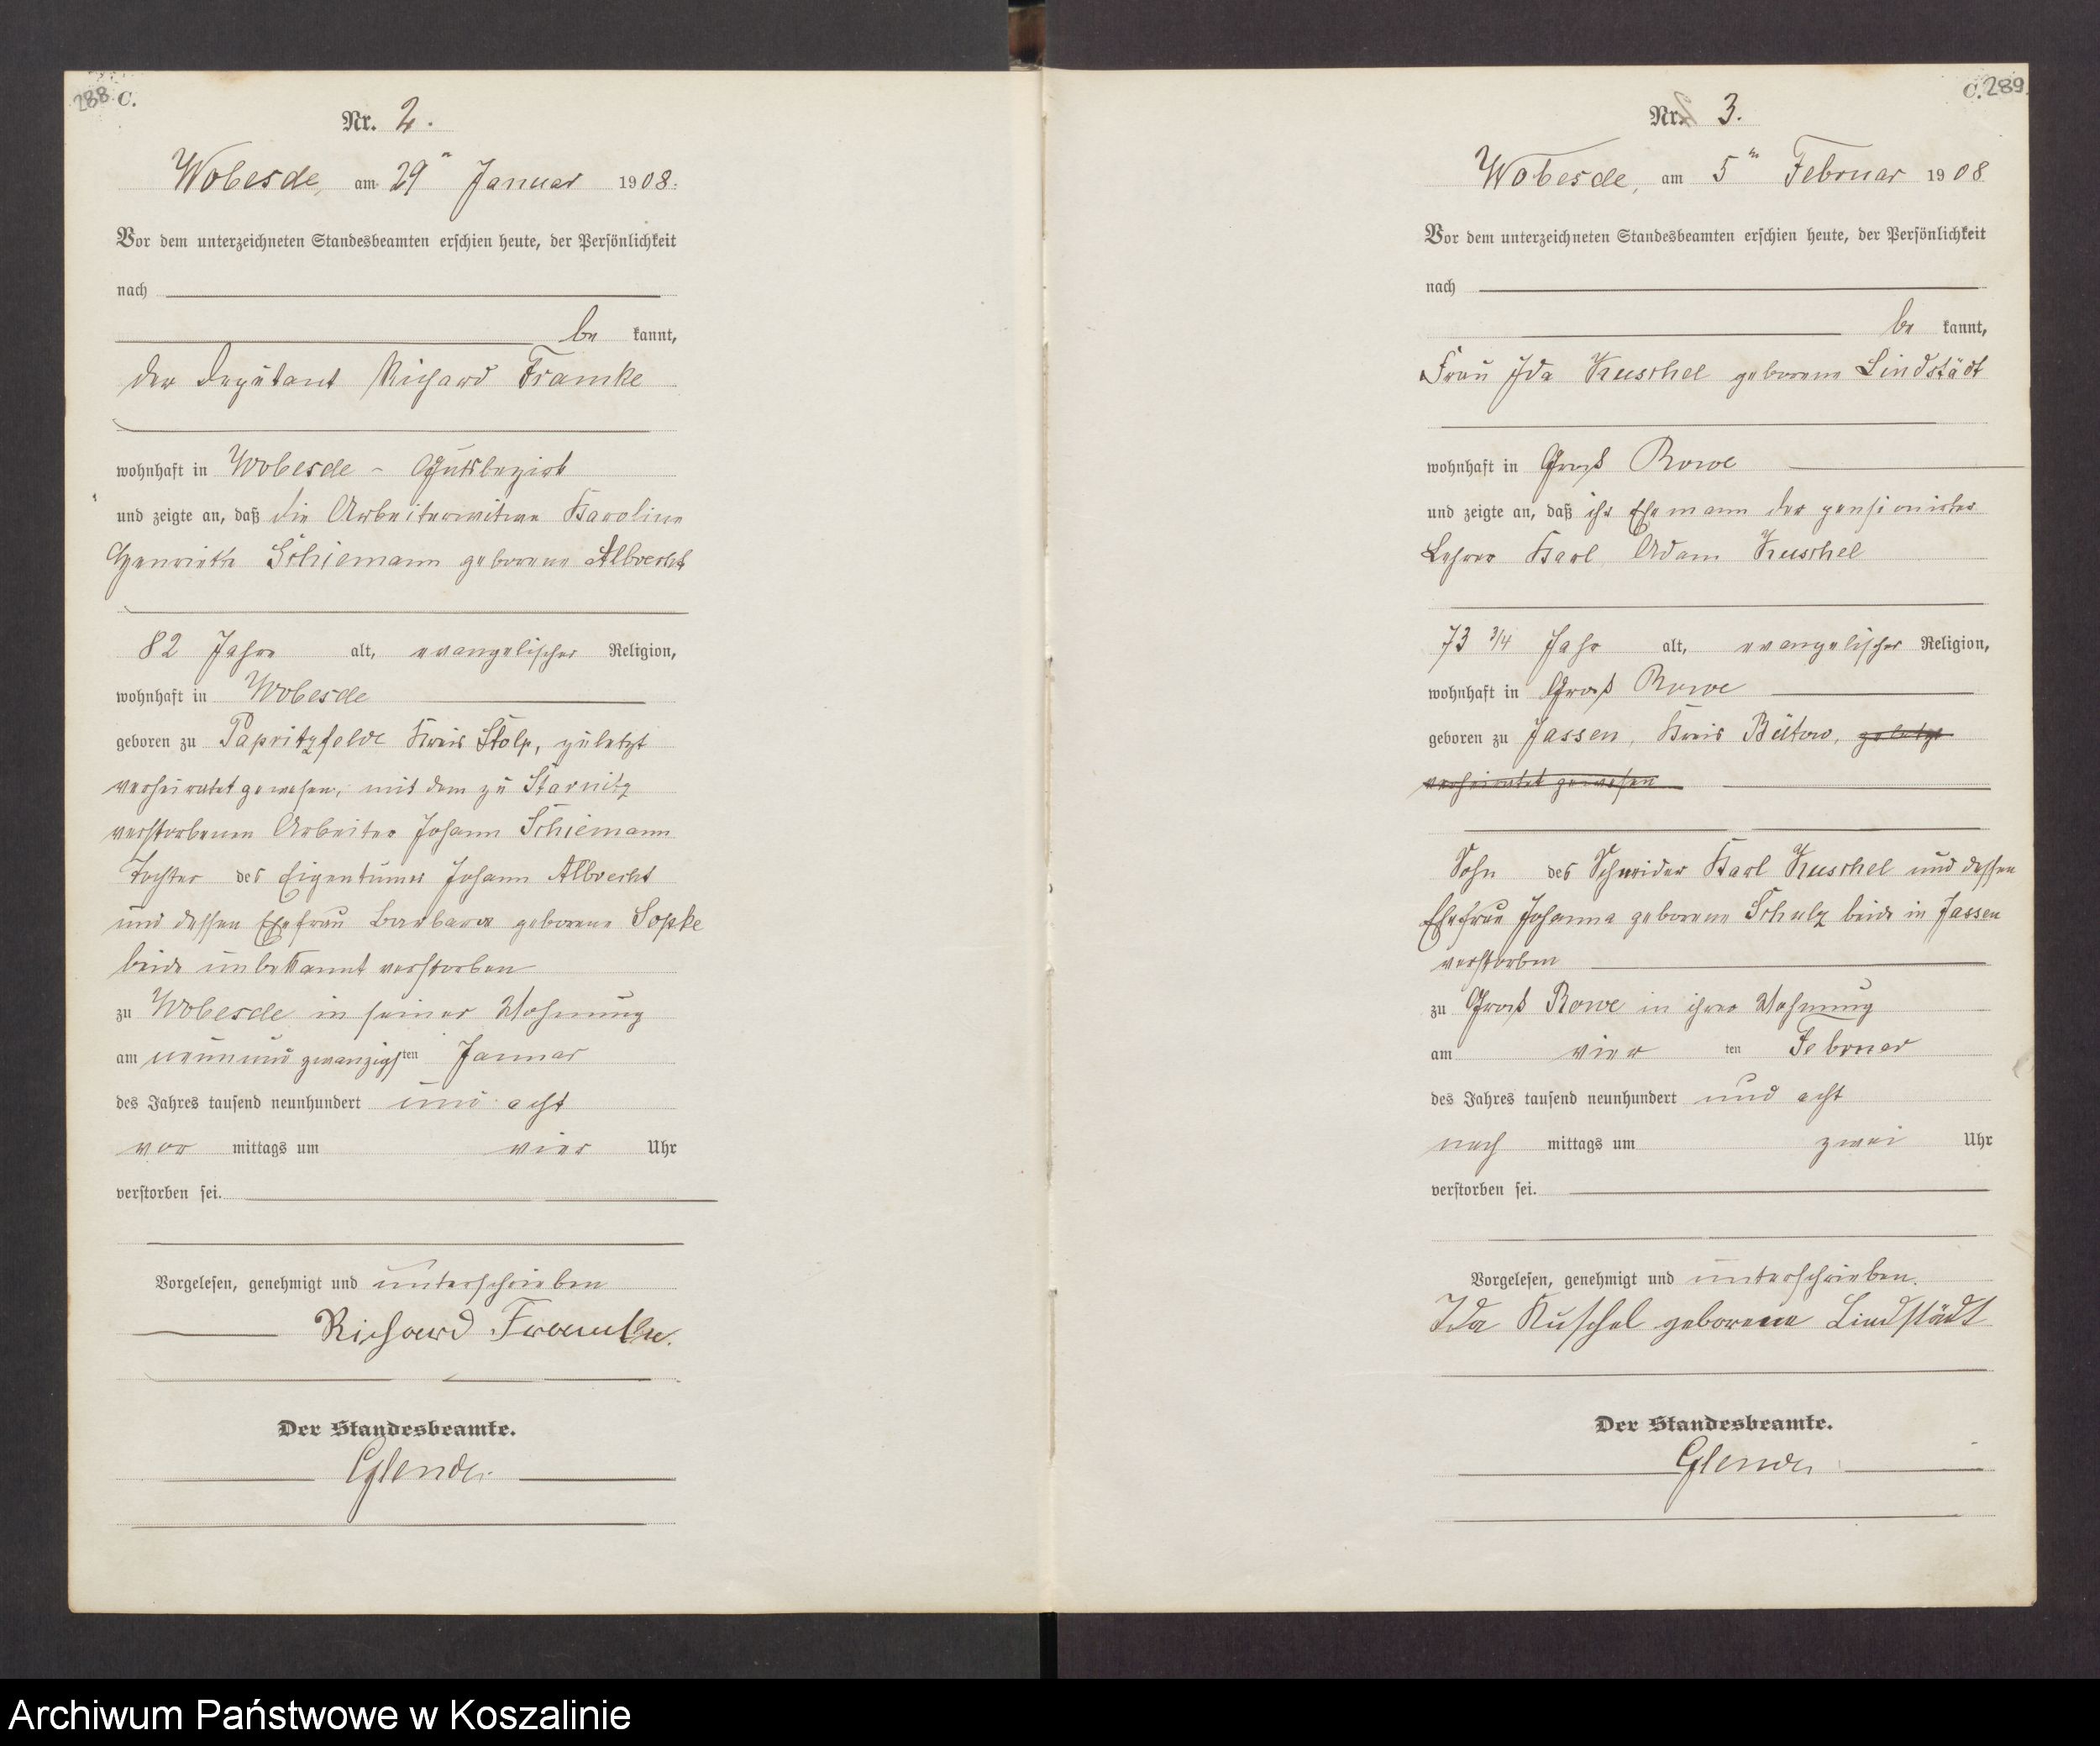 288 C.
Nr. 2.
Wobesde, am 29ⁿ Januar 1908.
Vor dem unterzeichneten Standesbeamten erschien heute, der Persönlichkeit
nach
be kannt,
der Deputant Richard Framke
wohnhaft in Wobesde - Gutsbezirk
und zeigte an, daß die Arbeiterwitwe Karoline
Henriette Schiemann geborene Albrecht
82 Jahre alt, evangelischer Religion,
wohnhaft in Wobesde
geboren zu Papritzfelde Kreis Stolp, zuletzt
verheiratet gewesen, mit dem zu Starnitz
verstorbenen Arbeiter Johann Schiemann
Tochter des Eigentümer Johann Albrecht
und dessen Ehefrau Barbara geborene Sopke
beide unbekannt verstorben
zu Wobesde in seiner Wohnung
am neunundzwanzigsten Januar
des Jahres tausend neunhundert und acht
vor mittags um vier Uhr
verstorben sei.
Vorgelesen, genehmigt und unterschrieben
Richard Framke.
Der Standesbeamte.
C. 289
Nr. 3.
Wobesde, am 5ⁿ Februar 1908
Vor dem unterzeichneten Standesbeamten erschien heute, der Persönlichkeit
nach
be kannt,
Frau Ida Kuschel geborene Lindstädt
wohnhaft in Groß Rowe
und zeigte an, daß ihr Ehemann der pensionierter
Lehrer Karl Adam Kuschel
73 3/4 Jahr alt, evangelischer Religion,
wohnhaft in Groß Rowe
geboren zu Jassen, Kreis Bütow,
verheiratet gewesen
Sohn des Schneider Karl Kuschel und dessen
Ehefrau Johanna geborene Schulz beide in Jassen
verstorben
zu Groß Rowe in ihrer Wohnung
am vier ten Februar
des Jahres tausend neunhundert und acht
nach mittags um zwei Uhr
verstorben sei.
Vorgelesen, genehmigt und unterschrieben.
Ida Kuschel geborene Lindstädt
Der Standesbeamte.
Archiwum Państwowe w Koszalinie